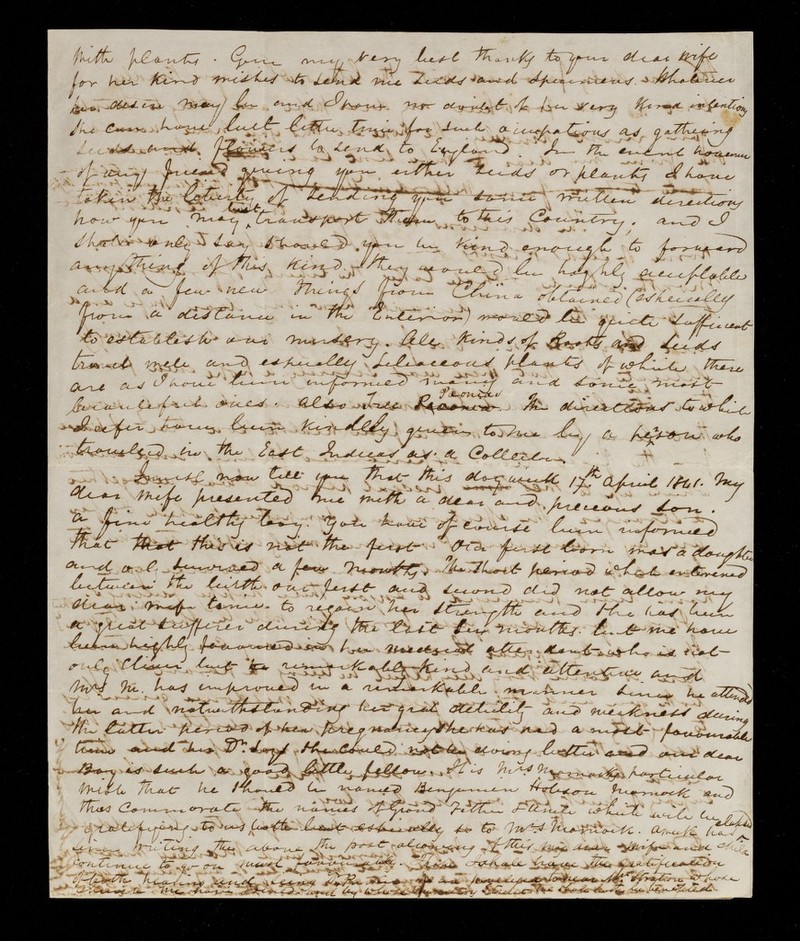 with plants. Give my very best thanks to your dear wife
for her kind wishes to send me seeds and specimens. Whatever
her desire may be and I have no doubt of her very kind intentions
she can have but little time for such occupations as gathering
seeds and flowers to send to England. In the event however
of any friend giving you either seeds or plants I have
taken the liberty of sending you some written directions
how you may best transport them to this Country, and I
shall only say should you be kind enough to forward
anything of this kind they would be highly acceptable
and a few new things from China obtained (especially
from a distance in the Interior) would be quite sufficient
to establish our nursery. All kinds of Roots and seeds
travel well and especially Liliaceous plants of which there
are as I have been informed many and some most
beautiful ones. also Tree Peonies The directions to which
I refer have been kindly given to me by a person who
travelled in the East Indies as a Collector
I must now tell you that this day week 17th April 1861. My
dear wife presented me with a dear and precious son.
a fine healthy boy. You have of course been informed
that this is not the first Our first born was a daughter
and only survived a few months. The short period which intervened
between the birth our first and second did not allow my
dear wife time to regain her strength and she has been
a great sufferer during the last six months. but we have
been highly favoured in her medical attendant who is not
only clever but remarkably kind and attentive and
Mrs M. has improved in a remarkable manner since he attended
her and notwithstanding her great debility and weakness during
the latter period of her pregnancy she has had a most favourable
time and her Dr says she could not be doing better and our dear
Boy is such a good little fellow. It is Mrs Marnock's particular
wish that he should be named Benjamin Hobson Marnock and
thus commorate the names of Grand Father & Uncle which will be
gratifying to us both but especially so to Mrs Marnock. A week has elapsed
since writing the above the
continue to go on
of both hearing and seeing